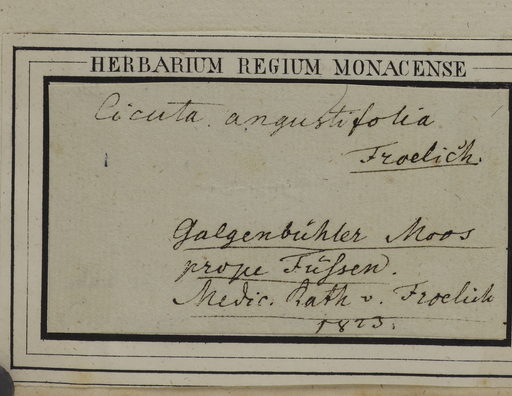 HERBARIUM REGIUM MONACENSE
Cicuta angustifolia
Froelich.
Galgenbühler Moos
prope Füssen.
Medic. Rath v. Froelich
1823.